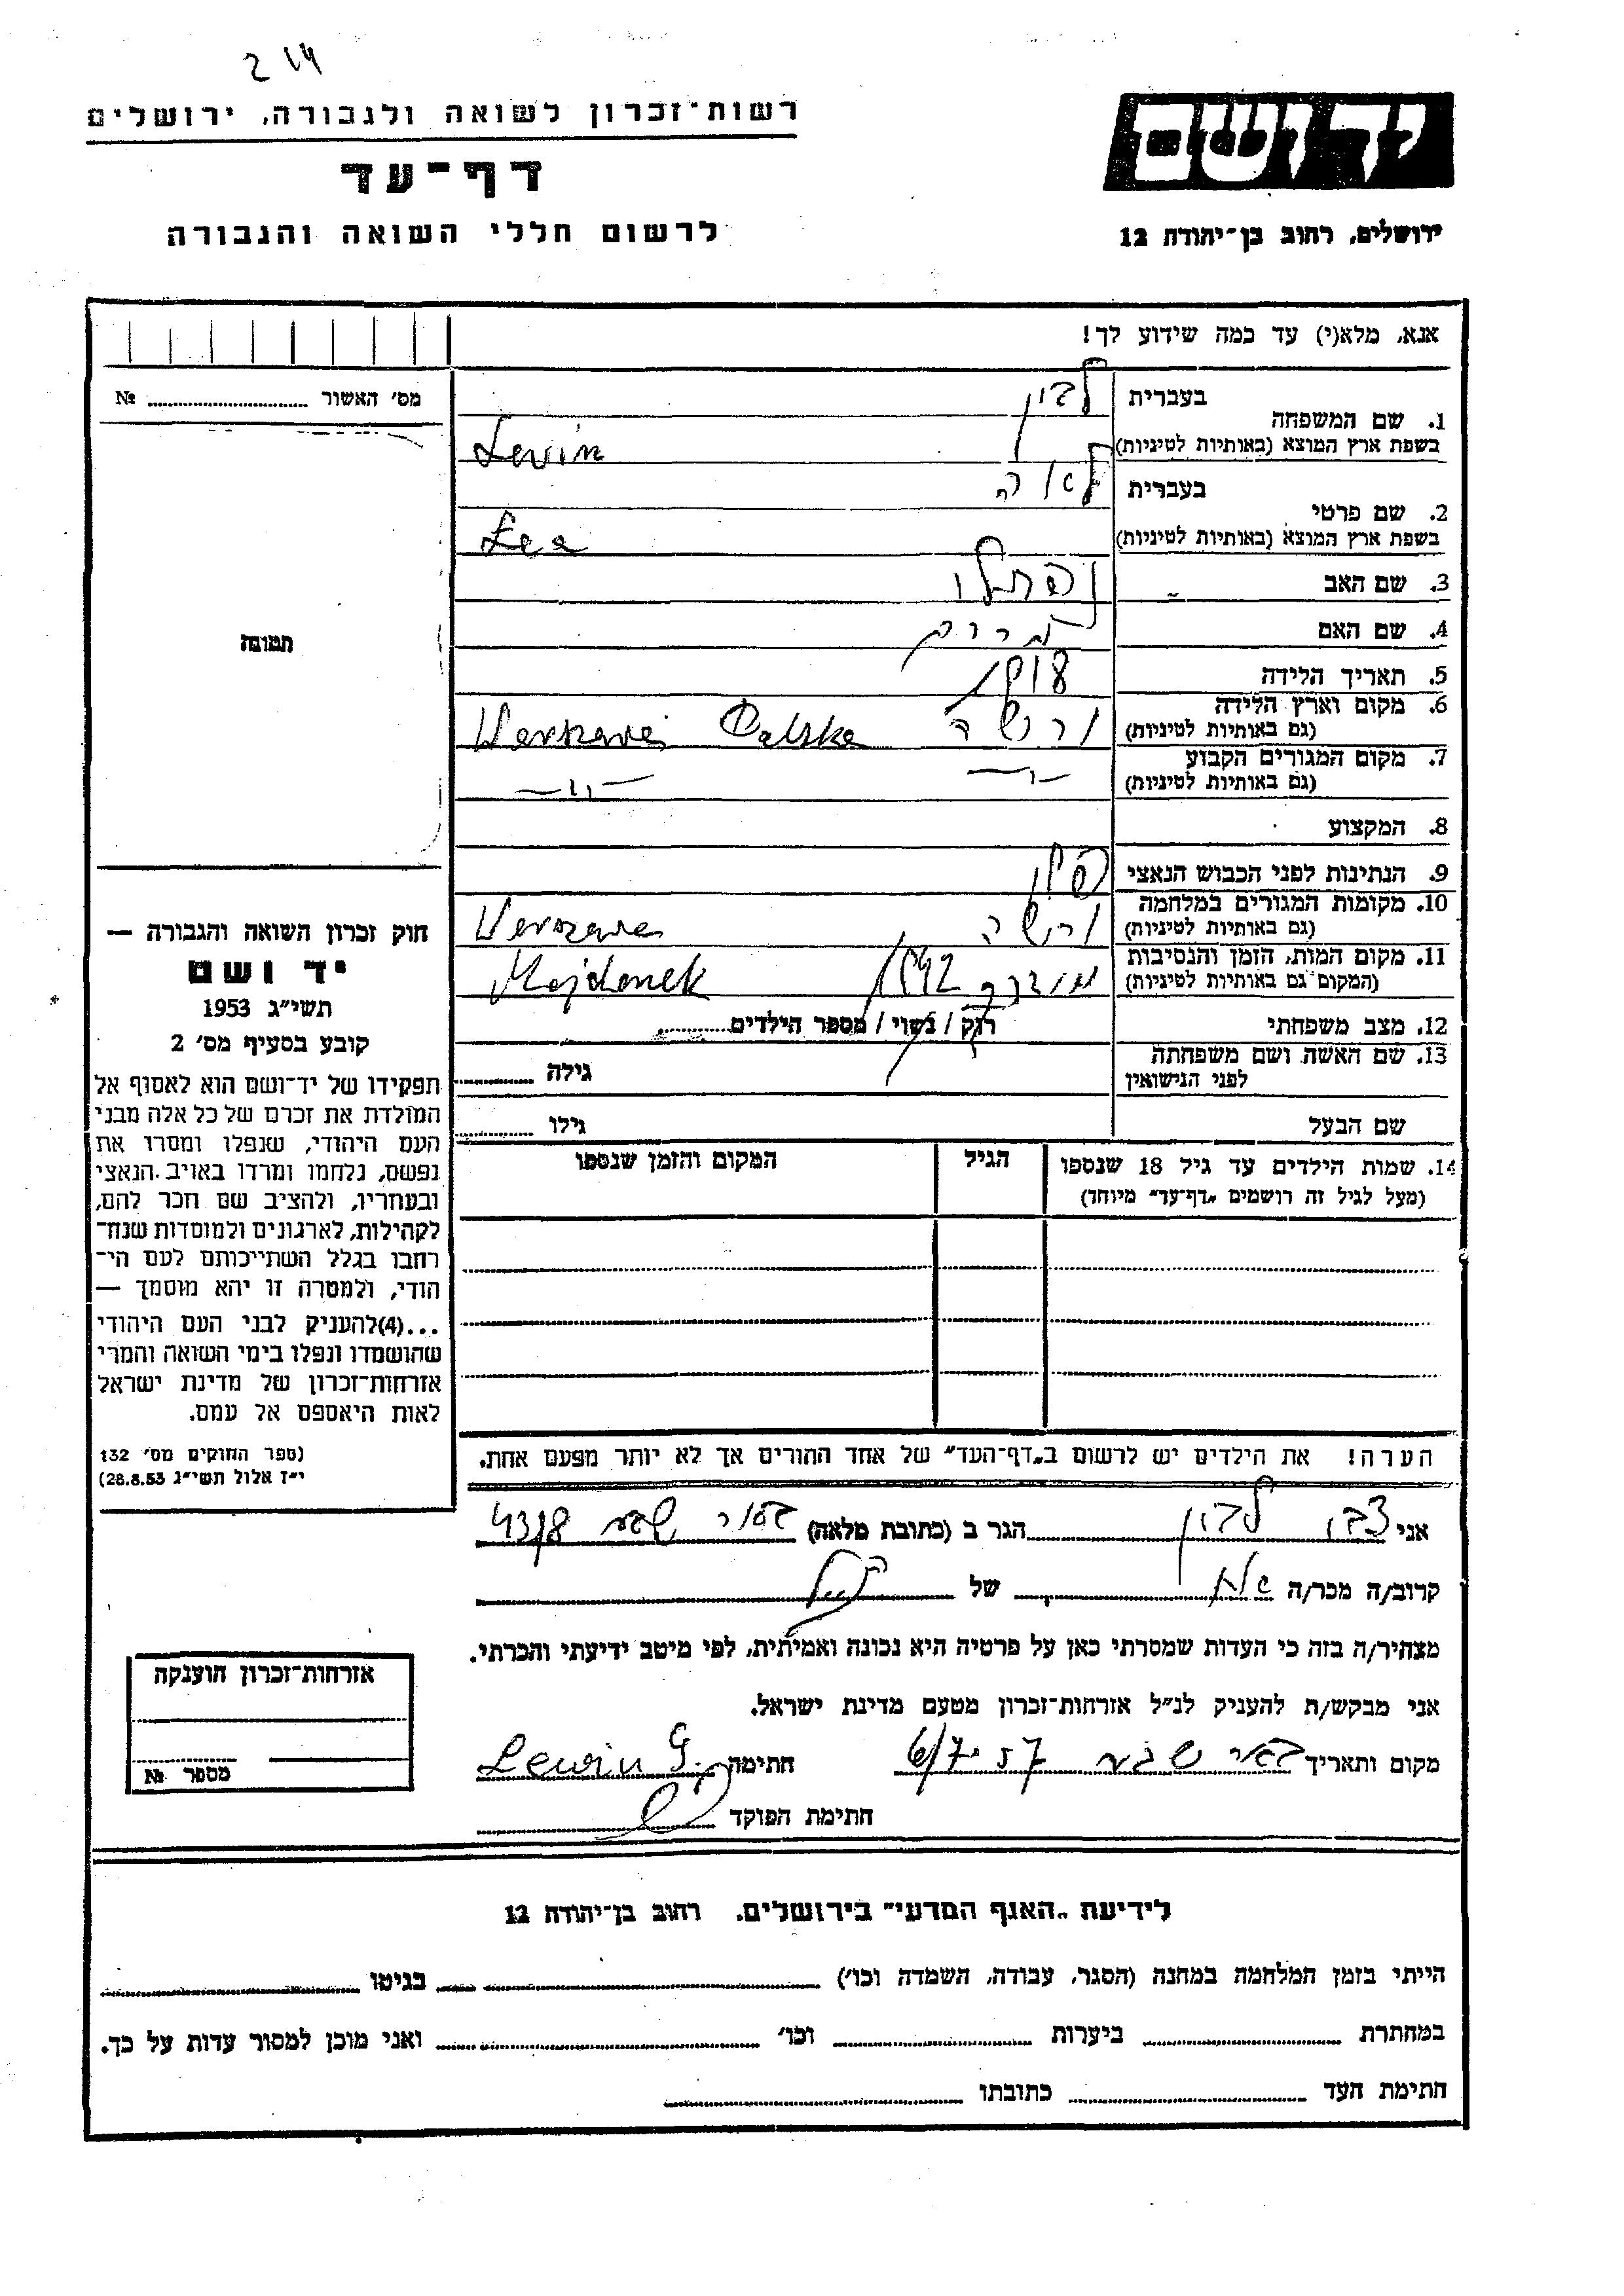 214
רשות־זכרון לשואה ולגבורה, ירושלים
דף־עד
לרשום חללי השואה והגבורה
יד ושם
ירושלים, רחוב בן־יהודה 12
אנא, מלא(י) עד כמה שידוע לך!
1. שם המשפחה
בעברית לוין
בשפת ארץ המוצא (באותיות לטיניות) Lewin
2. שם פרטי
בעברית לאה
בשפת ארץ המוצא (באותיות לטיניות) Lea
3. שם האב נפתלי
4. שם האם
5. תאריך הלידה
6. מקום וארץ הלידה
(גם באותיות לטיניות) ורשה Warszawa Polska
7. מקום המגורים הקבוע
(גם באותיות לטיניות) —"— —"—
8. המקצוע
9. הנתינות לפני הכבוש הנאצי פולין
10. מקומות המגורים במלחמה
(גם באותיות לטיניות) ורשה Warszawa
11. מקום המות, הזמן והנסיבות
(המקום גם באותיות לטיניות) 1942 Majdanek
12. מצב משפחתי רוק / נשוי / מספר הילדים
13. שם האשה ושם משפחתה
לפני הנישואין גילה
שם הבעל גילו
14. שמות הילדים עד גיל 18 שנספו
(מעל לגיל זה רושמים „דף־עד" מיוחד)
הגיל
המקום והזמן שנספו
הערה! את הילדים יש לרשום ב„דף־העד" של אחד ההורים אך לא יותר מפעם אחת.
מס' האשור №
תמונה
חוק זכרון השואה והגבורה —
יד ושם
תשי"ג 1953
קובע בסעיף מס' 2
תפקידו של יד־ושם הוא לאסוף אל
המולדת את זכרם של כל אלה מבני
העם היהודי, שנפלו ומסרו את
נפשם, נלחמו ומרדו באויב הנאצי
ובעוזריו, ולהציב שם וזכר להם,
לקהילות, לארגונים ולמוסדות שנח־
רבו בגלל השתייכותם לעם הי־
הודי, ולמטרה זו יהא מוסמך —
...(4)להעניק לבני העם היהודי
שהושמדו ונפלו בימי השואה והמרי
אזרחות־זכרון של מדינת ישראל
לאות היאספם אל עמם.
(ספר החוקים מס' 132
י"ז אלול תשי"ג 28.8.53)
אני לוין הגר ב (כתובת מלאה) באר שבע
קרוב/ה מכר/ה של
מצהיר/ה בזה כי העדות שמסרתי כאן על פרטיה היא נכונה ואמיתית, לפי מיטב ידיעתי והכרתי.
אני מבקש/ת להעניק לנ"ל אזרחות־זכרון מטעם מדינת ישראל.
מקום ותאריך באר שבע 6/7.57 חתימה Lewin G.
חתימת הפוקד
אזרחות־זכרון הוענקה
מספר №
לידיעת „האגף המדעי" בירושלים. רחוב בן־יהודה 12
הייתי בזמן המלחמה במחנה (הסגר, עבודה, השמדה וכו') בגיטו
במחתרת ביערות וכו' ואני מוכן למסור עדות על כך.
חתימת העד כתובתו